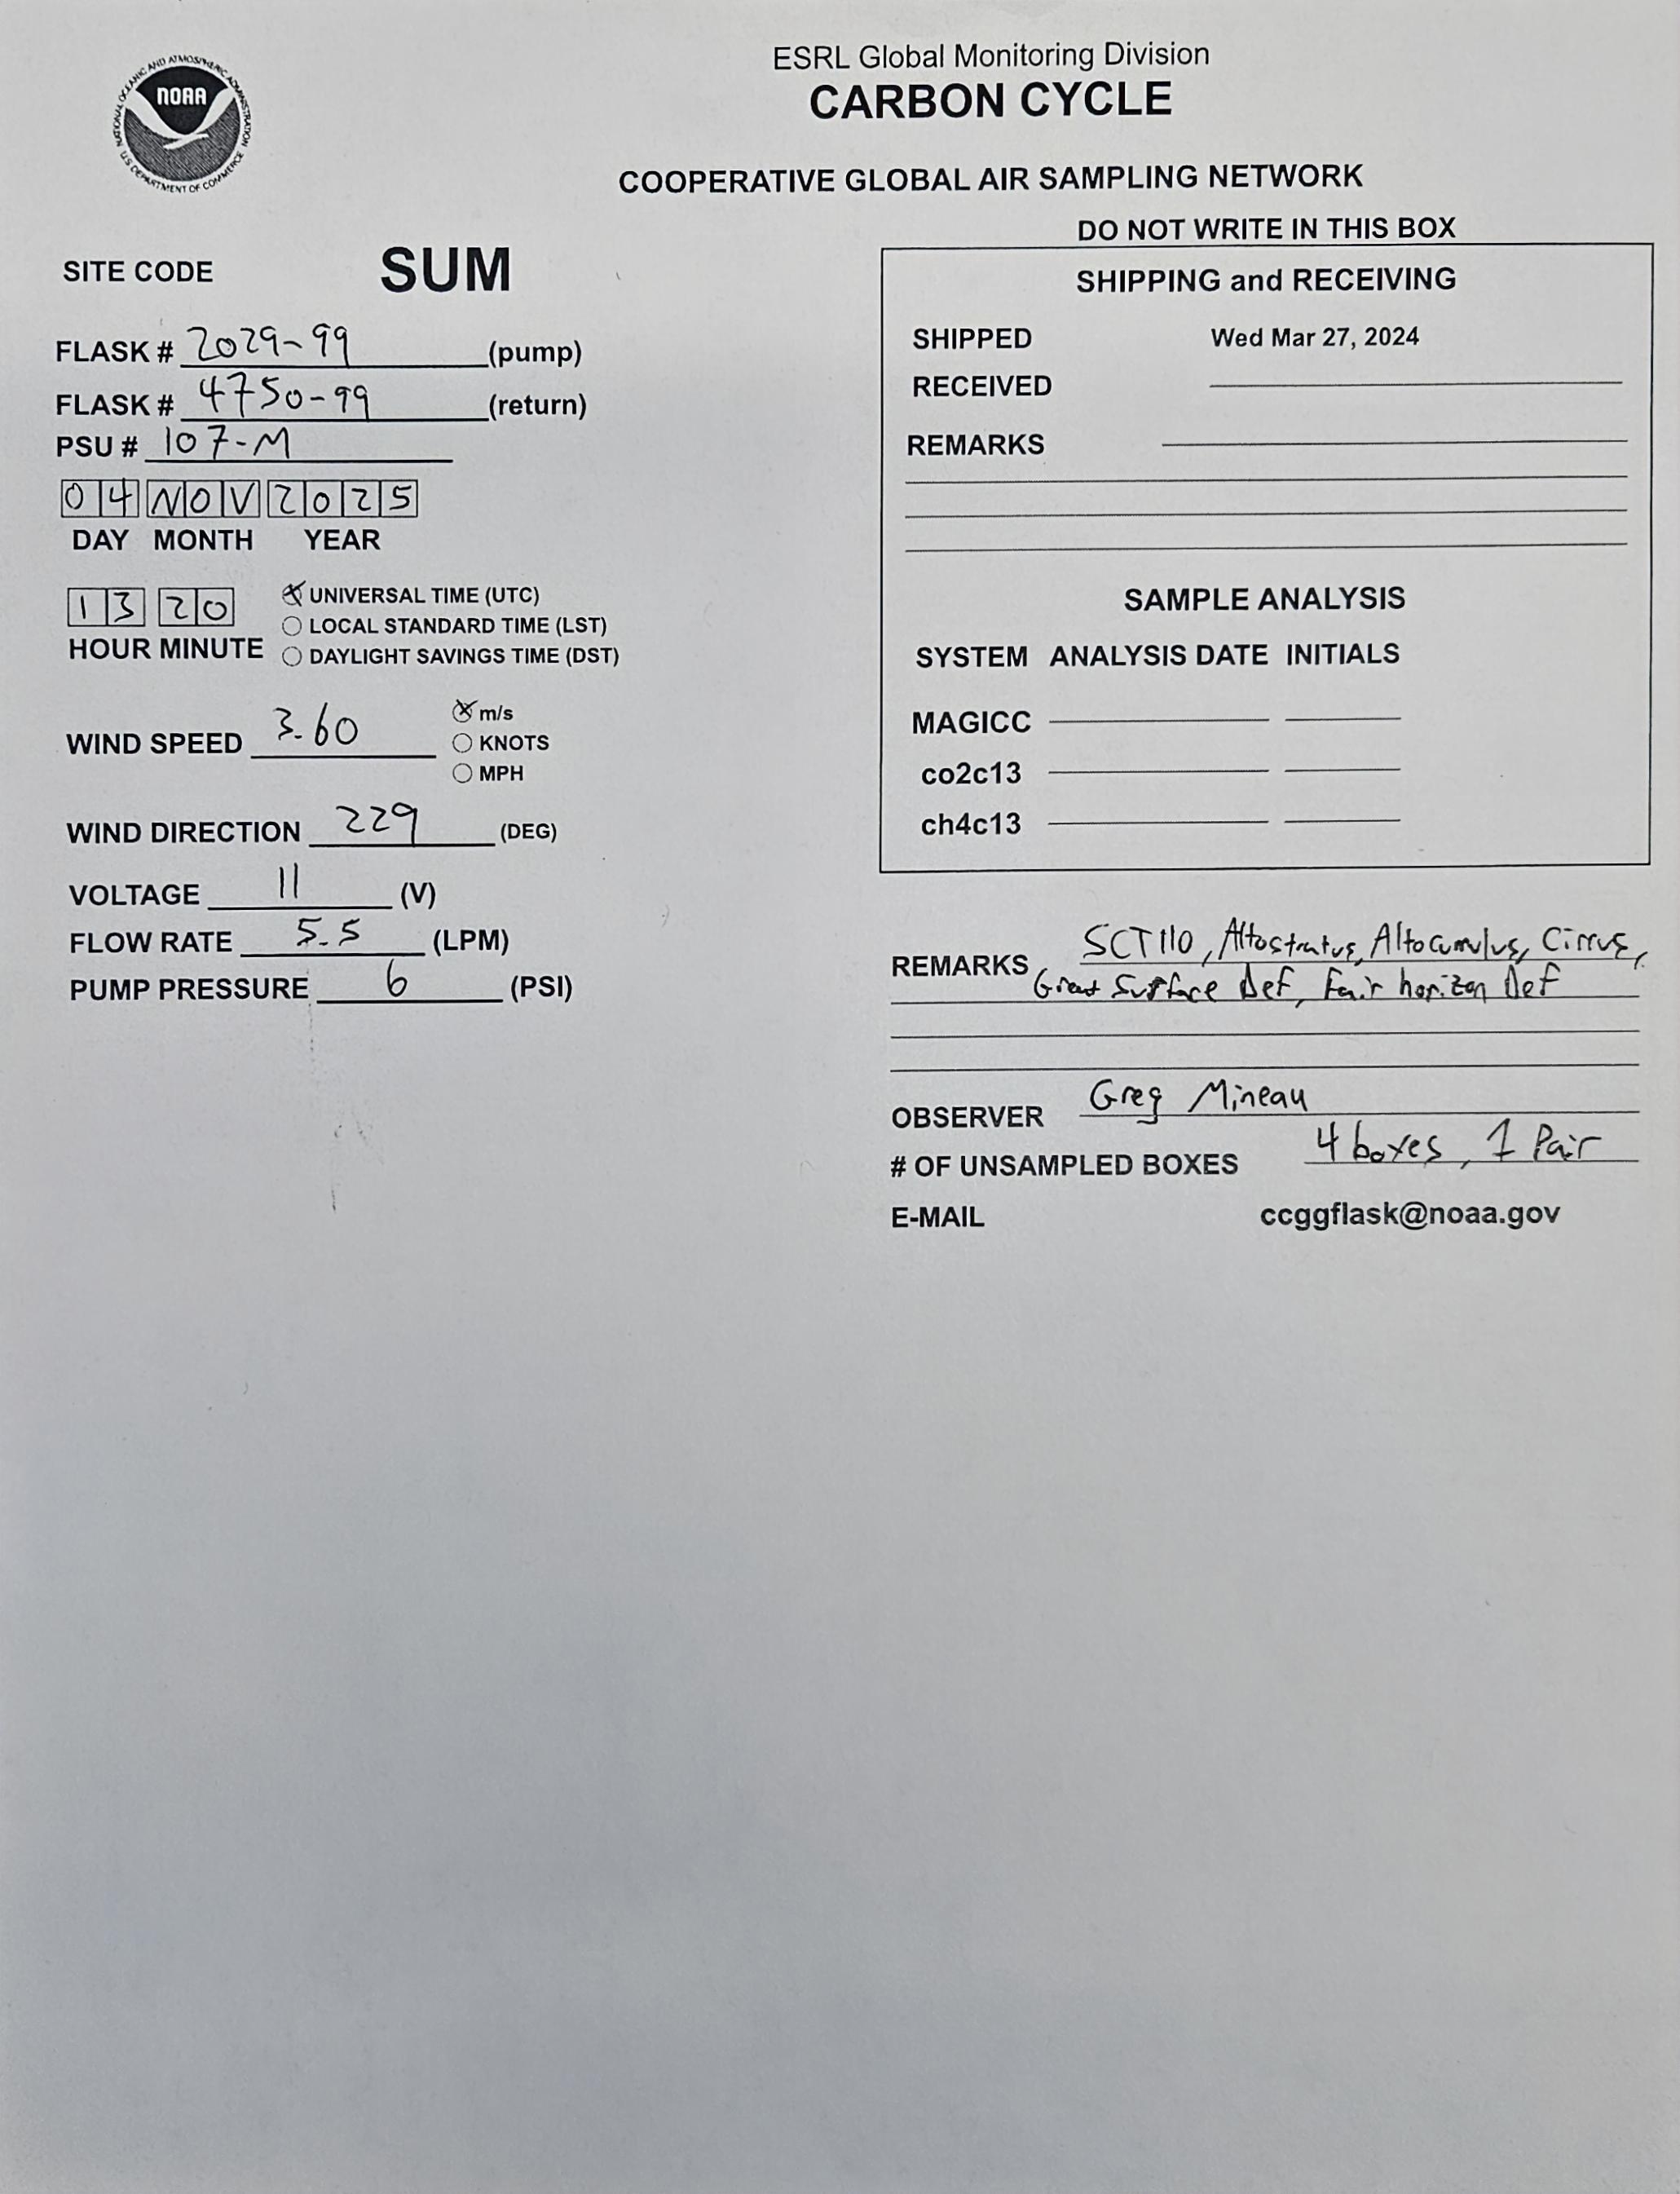 NATIONAL OCEANIC AND ATMOSPHERIC ADMINISTRATION
NOAA
U.S. DEPARTMENT OF COMMERCE
ESRL Global Monitoring Division
CARBON CYCLE
COOPERATIVE GLOBAL AIR SAMPLING NETWORK
SITE CODE SUM
FLASK # 2029-99 (pump)
FLASK # 4750-99 (return)
PSU # 107-M
04 NOV 2025
DAY MONTH YEAR
13 20
HOUR MINUTE
UNIVERSAL TIME (UTC)
LOCAL STANDARD TIME (LST)
DAYLIGHT SAVINGS TIME (DST)
WIND SPEED 3.60
m/s
KNOTS
MPH
WIND DIRECTION 229 (DEG)
VOLTAGE 11 (V)
FLOW RATE 5.5 (LPM)
PUMP PRESSURE 6 (PSI)
DO NOT WRITE IN THIS BOX
SHIPPING and RECEIVING
SHIPPED Wed Mar 27, 2024
RECEIVED
REMARKS
SAMPLE ANALYSIS
SYSTEM ANALYSIS DATE INITIALS
MAGICC
co2c13
ch4c13
REMARKS SCT110, Altostratus, Altocumulus, Cirrus,
Great Surface Def, Fair horizon Def
OBSERVER Greg Mineau
# OF UNSAMPLED BOXES 4 boxes, 1 Pair
E-MAIL ccggflask@noaa.gov